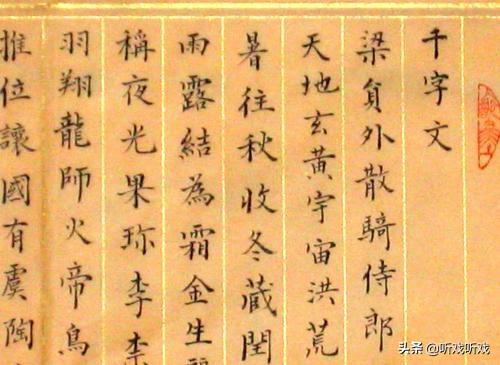 千字文
梁貟外散騎侍郎
天地玄黃宇宙洪荒
暑往秋收冬藏閏
雨露結為霜金生
稱夜光果珍李柰
羽翔龍師火帝鳥
推位讓國有虞陶
头条 @听戏听戏